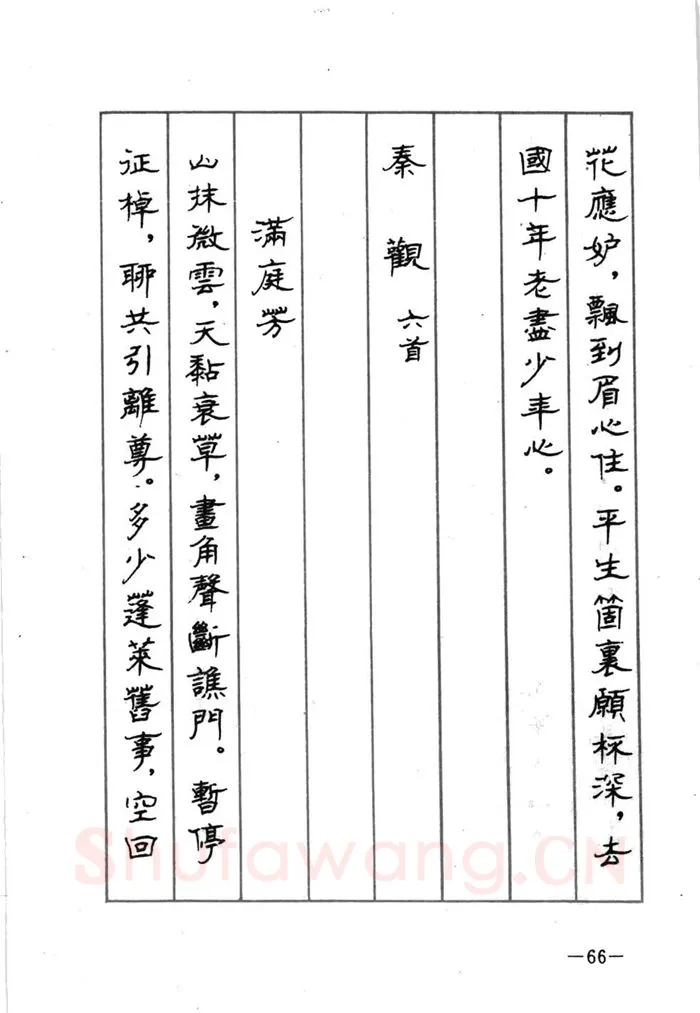 花應妒，飄到眉心住。平生箇裏願杯深，去
國十年老盡少年心。
秦觀 六首
滿庭芳
山抹微雲，天黏衰草，畫角聲斷譙門。暫停
征棹，聊共引離尊。多少蓬萊舊事，空回
Shufawang.CN
—66—